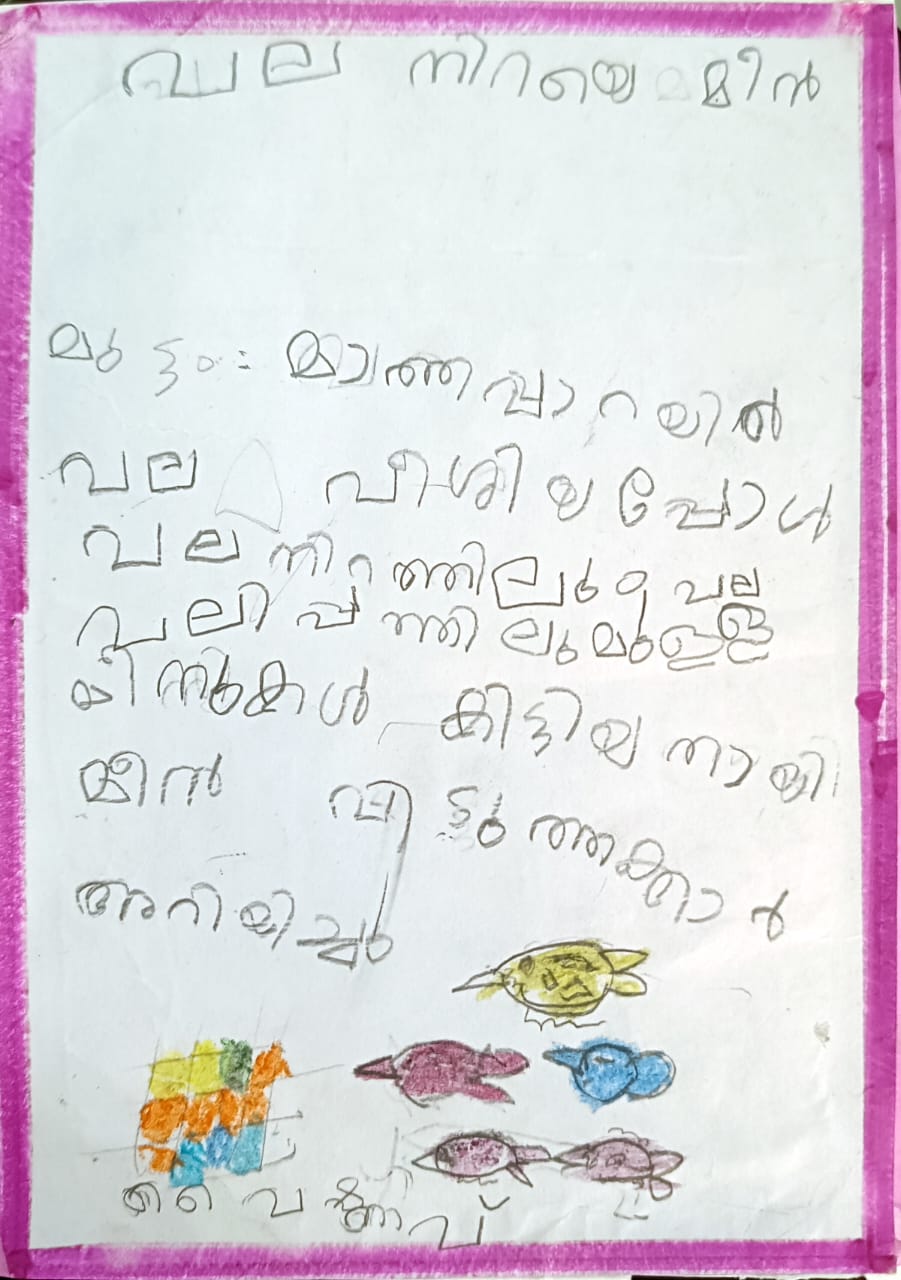 വല നിറയെ മീൻ
മുട്ടം: മാത്തപ്പാറയിൽ
വല വീശിയപ്പോൾ
പല നിറത്തിലും പല
വലിപ്പത്തിലുമുള്ള
മീനുകൾ കിട്ടിയതായി
മീൻ പിടുത്തക്കാർ
അറിയിച്ചു
വൈഷ്ണവ്